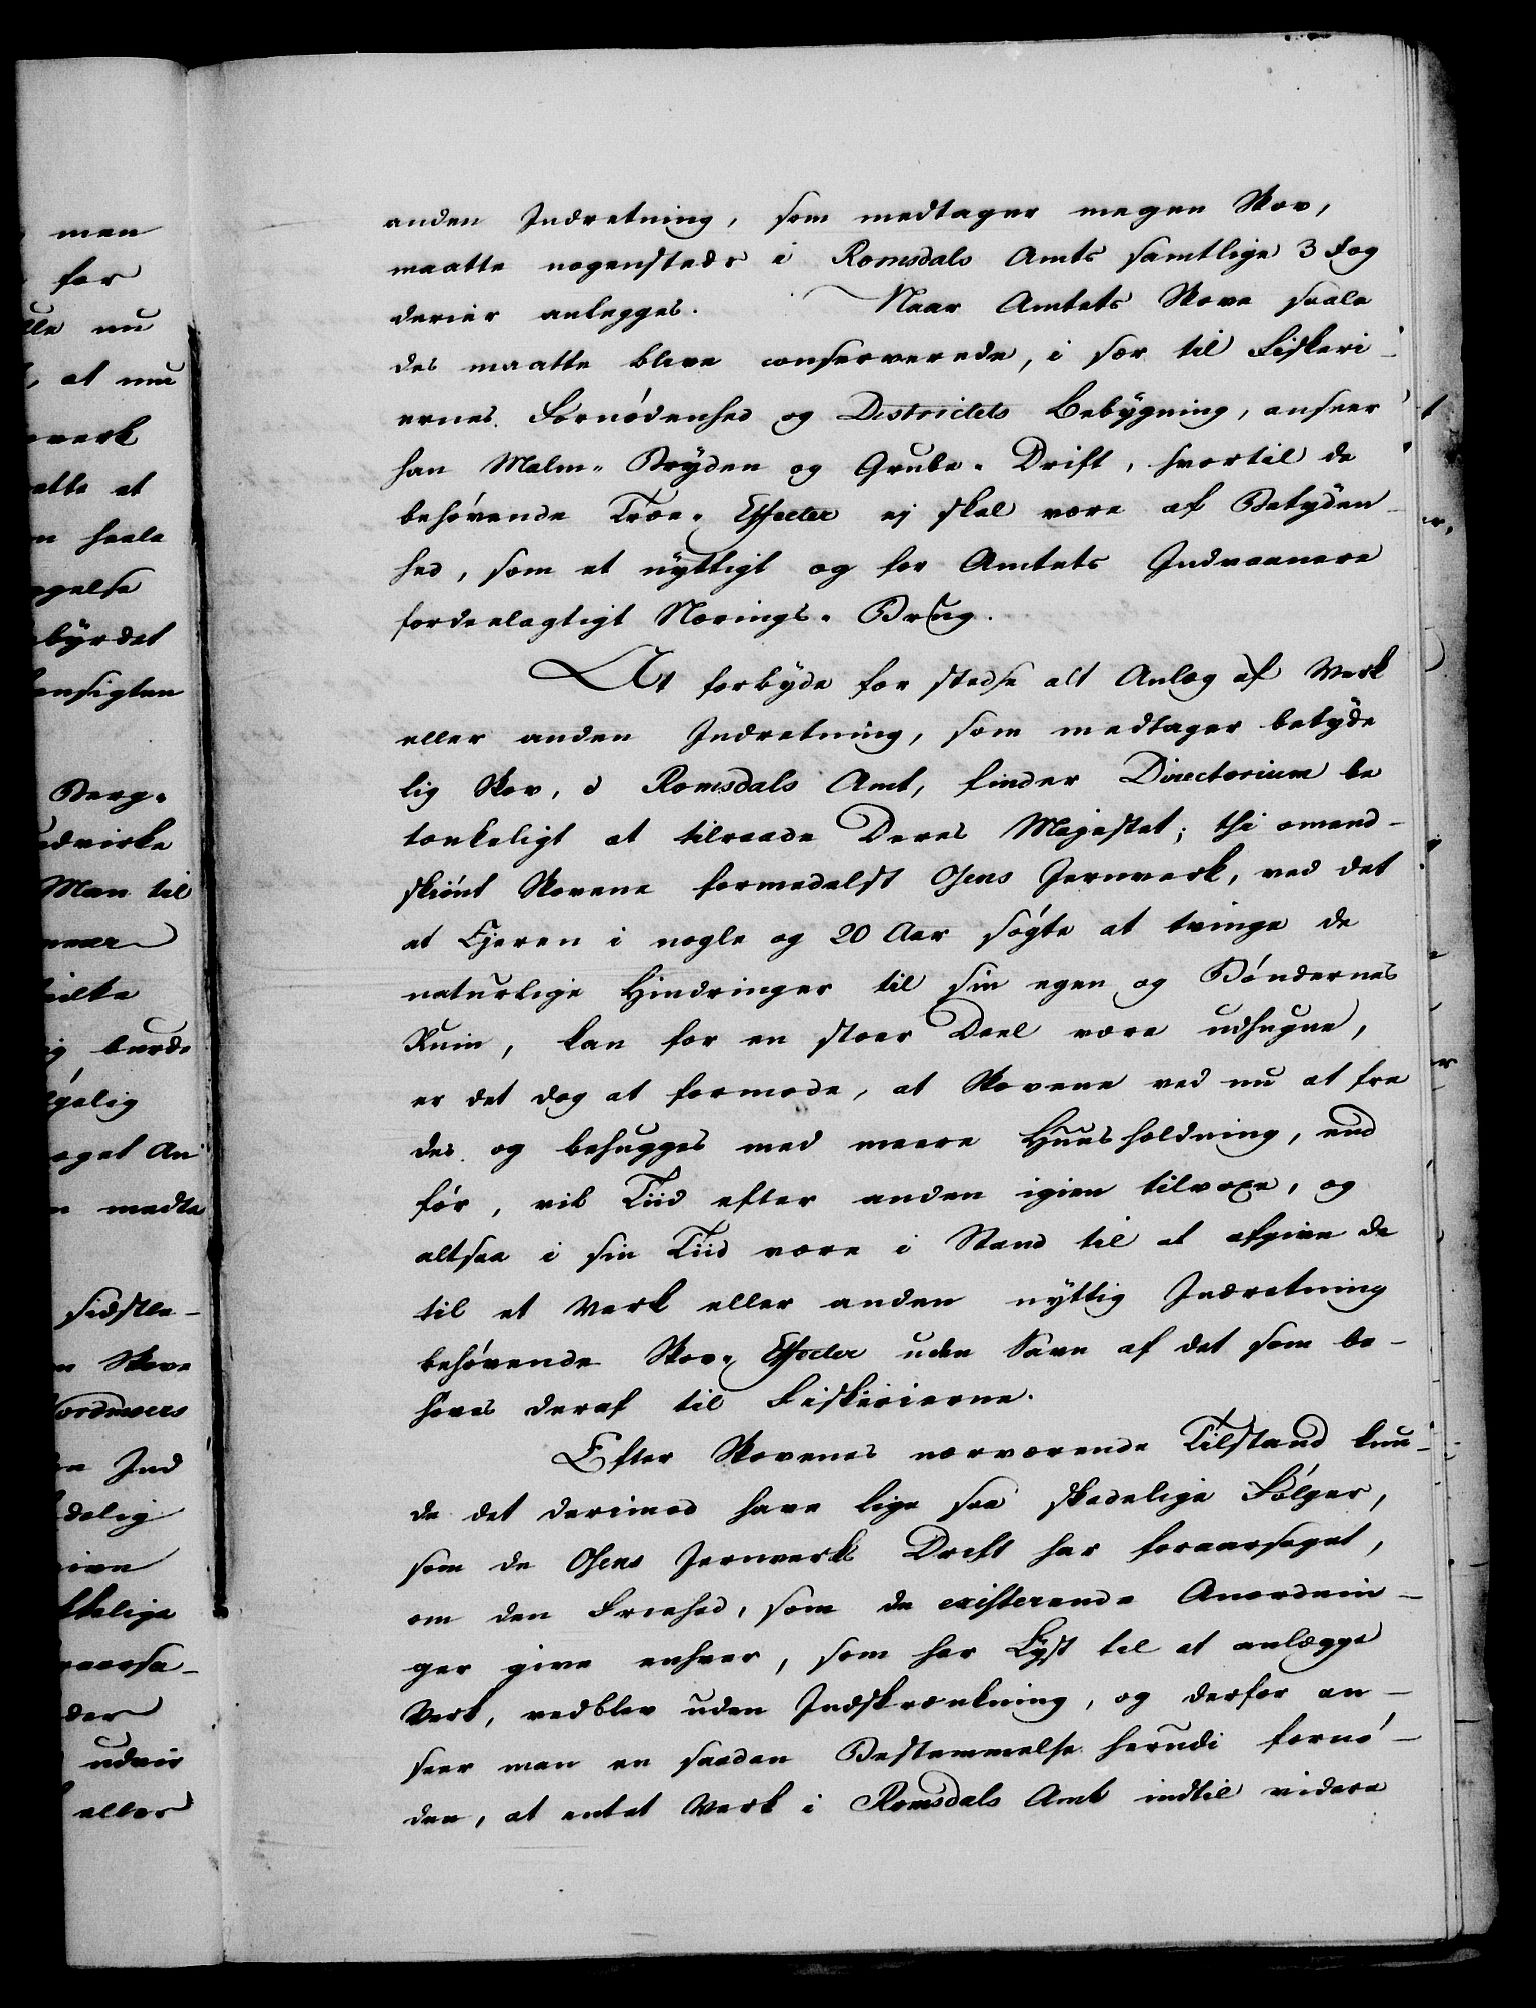 anden Indretning, som medtager megen Skov,
maatte nogenstæds i Romsdals Amts samtlige 3 Fog
derier anlegges. Naar Amtets Skove saale
des maatte blive conserverede, i sær til Fiskeri-
ernes Fornødenhed og Districtets Bebÿgning, anseer
han Malm- Brÿden og Grube- Drift, hvortil de
behøvende Træe- Effecter ej skal være af Betÿden-
hed, som et nÿttigt og for Amtets Indvaanere
fordeelagtigt Nærings- Brug.
At forbÿde for stedse alt Anlæg af Verk
eller anden Indretning, som medtager betÿde
lig Skov, i Romsdals Amt, finder Directorium be
tænkeligt at tilraade Deres Majestet; thi omend-
skiønt Skovene formedelst Osens Jernverk, ved det
at Ejeren i nogle og 20 Aar søgte at tvinge de
naturlige Hindringer til sin egen og Bøndernes
Ruin, kan for en stoer Deel være udhugne,
er det dog at formode, at Skovene ved nu at fre
des og behugges med meere Huusholdning, end
før, vil Tiid efter anden igien tilvoxe, og
altsaa i sin Tiid være i Stand til at afgive de
til et Verk eller anden nÿttig Indretning
behøvende Skov- Effecter uden Savn af det som be-
høves deraf til Fiskerierne.
Efter Skovenes nærværende Tilstand kun-
de det derimod have lige saa skadelige Følger,
som de Osens Jernverks Drift har foraarsaget,
om den Friehed, som de existerende Anordnin-
ger give enhver, som har Lyst til at anlægge
Verk, vedblev uden Indskrænkning, og derfor an-
seer man en saadan Bestemmelse herudi fornø-
den, at intet Verk i Romsdals Amt indtil videre
men
for
nu
at nu
verk
at
heele
gelse
bÿrdet
ensigten
Berg-
udvirke
Man til
burde
An
medta
sidstle-
Skove
Nordmoers
Ind
delig
udvir
eller